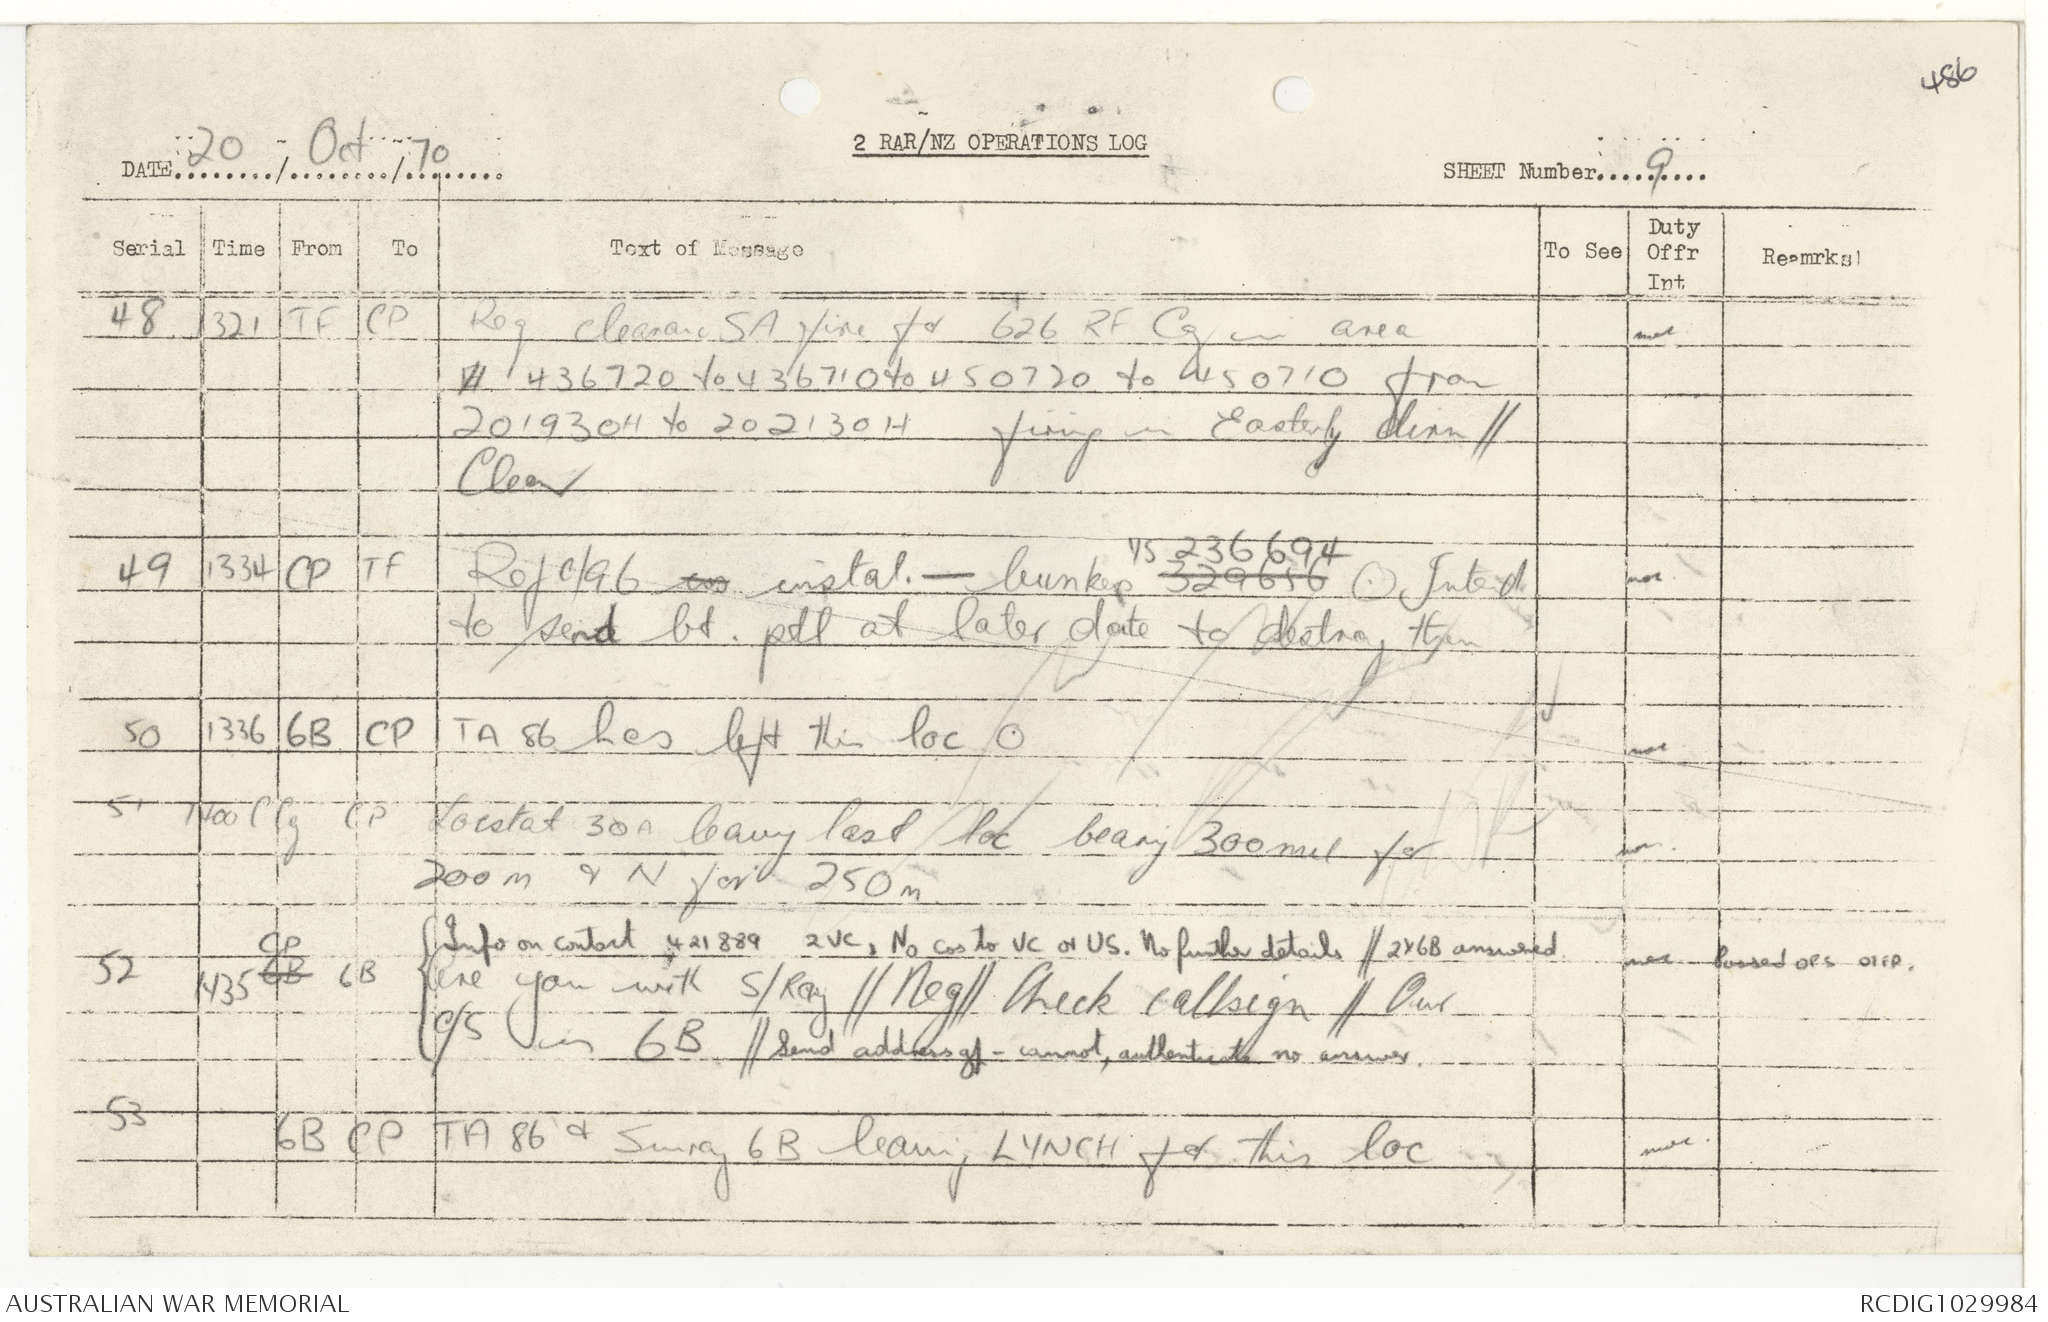 486
DATE 20 / Oct / 70
2 RAR/NZ OPERATIONS LOG
SHEET Number 9
Serial Time From To Text of Message To See Duty Offr Int Reamrks
48 1321 TF CP Req clearance SA fire for 626 RF Cy in area
436720 to 436710 to 450720 to 450710 from
201930H to 202130H firing in Easterly dirn //
Clear
YS 236694
49 1334 CP TF Ref c/96 instal. — bunkers 329656 ⊙ Intend
to send bt. ptl at later date to destroy them
50 1336 6B CP TA 86 has left this loc O
51 1400 C Cy CP Locstat 30A leaving last loc bearing 300 mil for
200m & N for 250m
CP
{Info on contact 421889 2VC, No cas to VC or US. No further details // 2Y6B answered.
52 1435 6B 6B are you with S/Ray // Neg // Check callsign // Our Passed OPS OFFR.
C/S is 6B // Send address gp - cannot, authenticate no answer.
53 6B CP TA 86 & Sunray 6B leaving LYNCH for this loc
AUSTRALIAN WAR MEMORIAL
RCDIG1029984